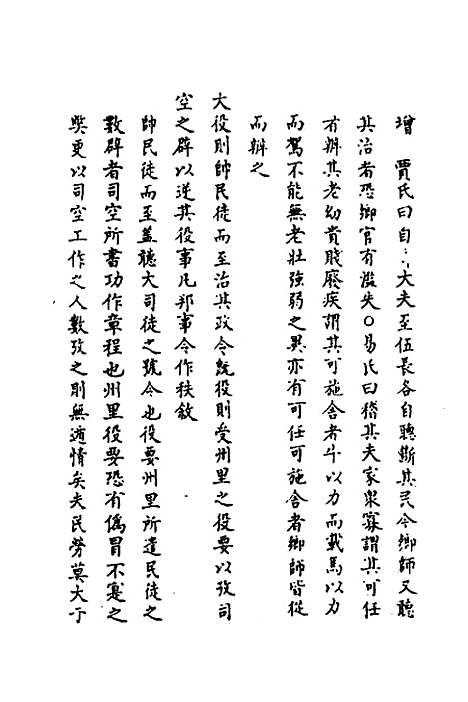 增 賈氏曰自:大夫至伍長各自聽斷其民令鄉師又聽
其治者恐鄉官有濫失○易氏曰稽其夫家衆寡謂其可任
有辨其老幼貴賤廢疾謂其可施舍者牛以力而載馬以力
而駕不能無老壯強弱之異亦有可任可施舍者鄉師皆從
而辨之
大役則帥民徒而至治其政令既役則受州里之役要以攷司
空之辟以逆其役事凡邦事令作秩敘
帥民徒而至蓋聽大司徒之號令也役要州里所遣民徒之
數辟者司空所書功作章程也州里役要恐有僞冒不寔之
弊更以司空工作之人數攷之則無遁情矣夫民勞莫大于